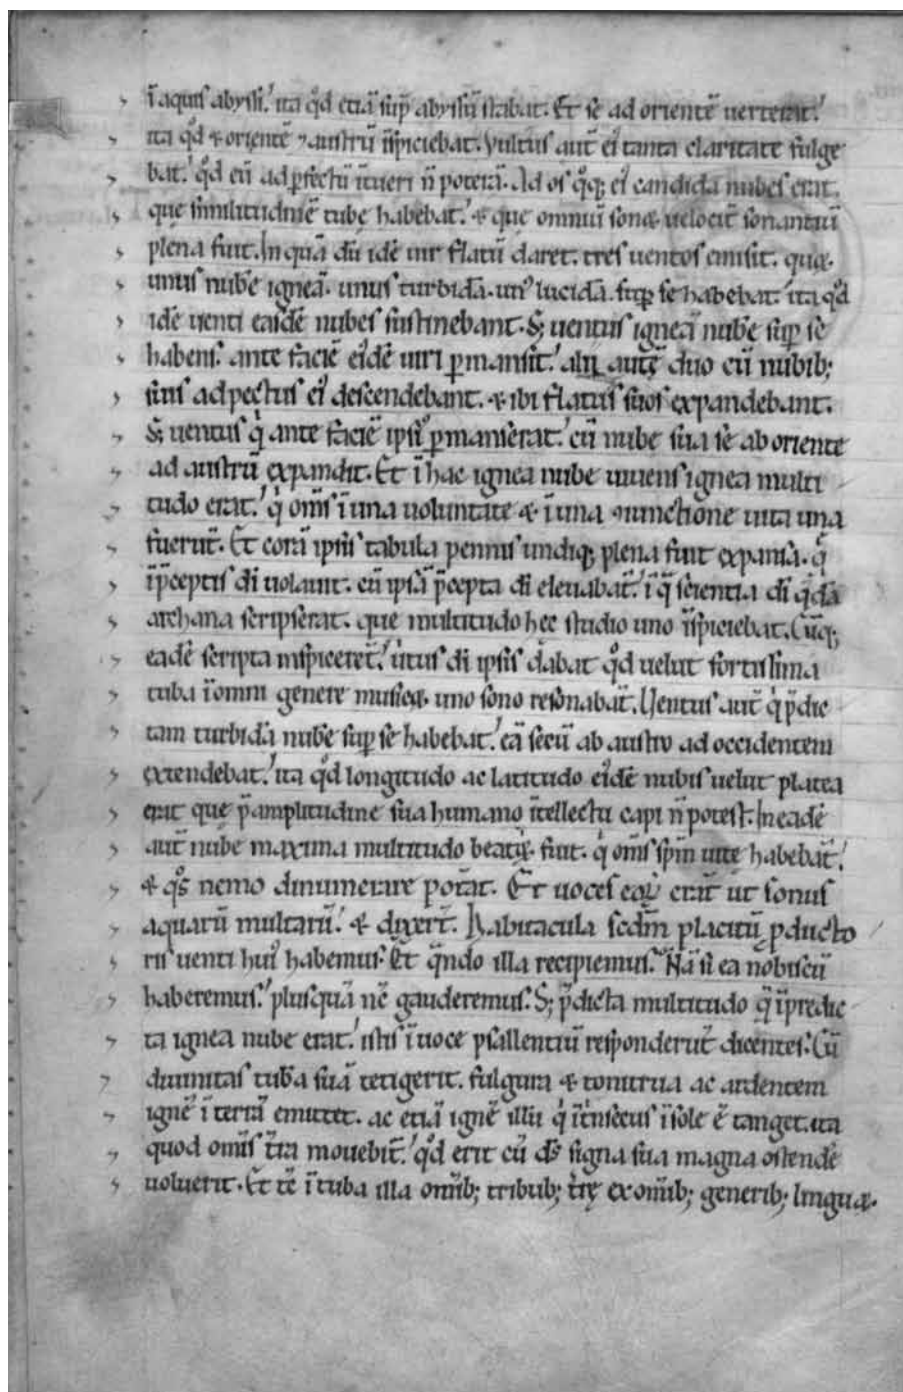 ĩ aquis abyssi. ita qd̊ etiã sup̱ abyssũ stabat. Et se ad orientẽ uerterat.
ita qd̊ & orientẽ ⁊ austrũ ĩspiciebat. Vultus aut̃ ei᷒ tanta claritate fulge
bat. qd̊ eũ ad ꝑfectũ ĩtueri ñ poterã. Ad os qq̊; ei᷒ candida nubes erat.
que similitudinẽ tube habebat. & que omniũ sonoꝝ uelocit̃ sonantiũ
plena fuit. In quã dũ idẽ uir flatũ daret. tres uentos emisit. quoꝝ
unus nubẽ igneã. unus turbidã. un᷒ lucidã. sup̱ se habebat. ita qd̊
idẽ uenti easdẽ nubes sustinebant. S; uentus igneã nubẽ sup̱ se
habens. ante faciẽ ei᷒dẽ uiri ꝑmansit. alii autẽ duo cũ nubib;
suis ad pectus ei᷒ descendebant. & ibi flatus suos expandebant.
S; uentus q̇ ante faciẽ ipsi᷒ ꝑmanserat. cũ nube sua se ab oriente
ad austrũ expandit. Et ĩ hac ignea nube uiuens ignea multi
tudo erat. q̇ om̃s ĩ una uoluntate & ĩ una ꝯiunctione uita una
fuerut̃. Et corã ipsis tabula pennis undiq; plena fuit expansa. q̃
ĩ p̃ceptis di̅ uolauit. cũ ipsã p̃cepta di̅ eleuabat̃. ĩ q̃ scientia di̅ q̃dã
archana scripserat. que multitudo hec studio uno ĩspiciebat. Cũq;
eadẽ scripta inspiceret̃. uirtus di̅ ipsis dabat qd̊ uelut fortissima
tuba ĩ omni genere musicoꝝ uno sono resonabat̃. Uentus aut̃ q̇ p̃dic
tam turbidã nubẽ sup̱ se habebat. eã secũ ab austro ad occidentem
extendebat. ita qd̊ longitudo ac latitudo ei᷒dẽ nubis uelut platea
erat que p̃ amplitudine sua humano ĩtellectu capi ñ potest. In eadẽ
aut̃ nube maxima multitudo beatoꝝ fuit. q̇ om̃s sp̃m uite habebat̃.
& qo̊s nemo dinumerare poterat. Et uoces eoꝝ erat̃ ut sonus
aquarũ multarũ. & dixert̃. Habitacula scdm̃ placitũ ꝑducto
ris uenti hui᷒ habemus. Et qñdo illa recipiemus. Nã si ea nobiscũ
haberemus. plusquã nc̃ gauderemus. S; p̃dicta multitudo q̃ ĩ predic
ta ignea nube erat. istis ĩ uoce psallentiũ responderut̃ dicentes. Cũ
diuinitas tubã suã tetigerit. fulgura & tonitrua ac ardentem
ignẽ ĩ terrã emittet. ac etiã ignẽ illũ q̇ ĩtrĩsecus ĩ sole ẽ tanget. ita
quod om̃is t̃ra mouebit̃. qd̊ erit cũ ds̃ signa sua magna ostendẽ
uoluerit. Et tc̃ ĩ tuba illa om̃ib; tribub; t̃rę ex om̃ib; generib; linguaꝝ.